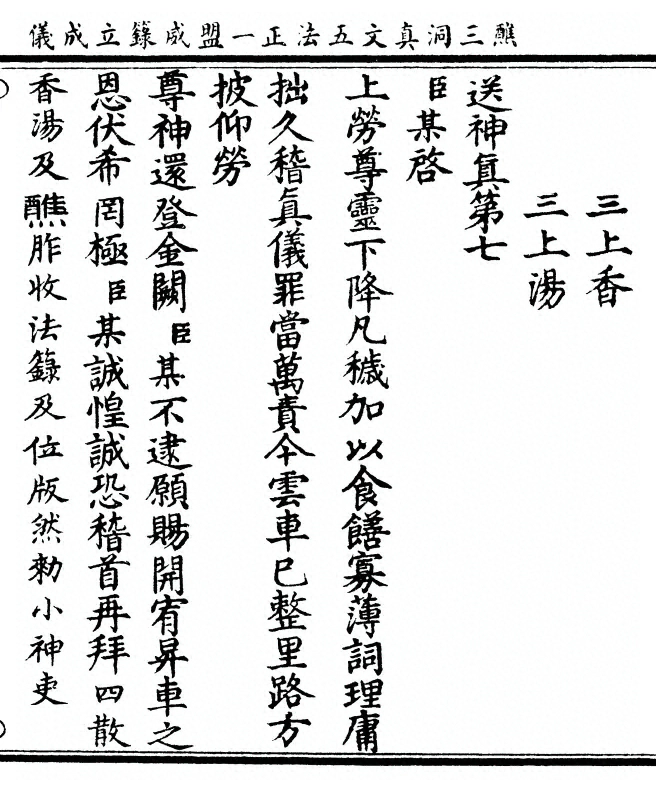 醮三洞真文五法正一盟威籙立成儀
三上香
三上湯
送神真第七
臣某啓
上勞尊靈下降凡穢加以食饍寡薄詞理庸
拙久稽真儀罪當萬責今雲車已整里路方
披仰勞
尊神還登金闕臣某不逮願賜開宥昇車之
恩伏希罔極臣某誠惶誠恐稽首再拜四散
香湯及醮胙收法籙及位版然勑小神吏